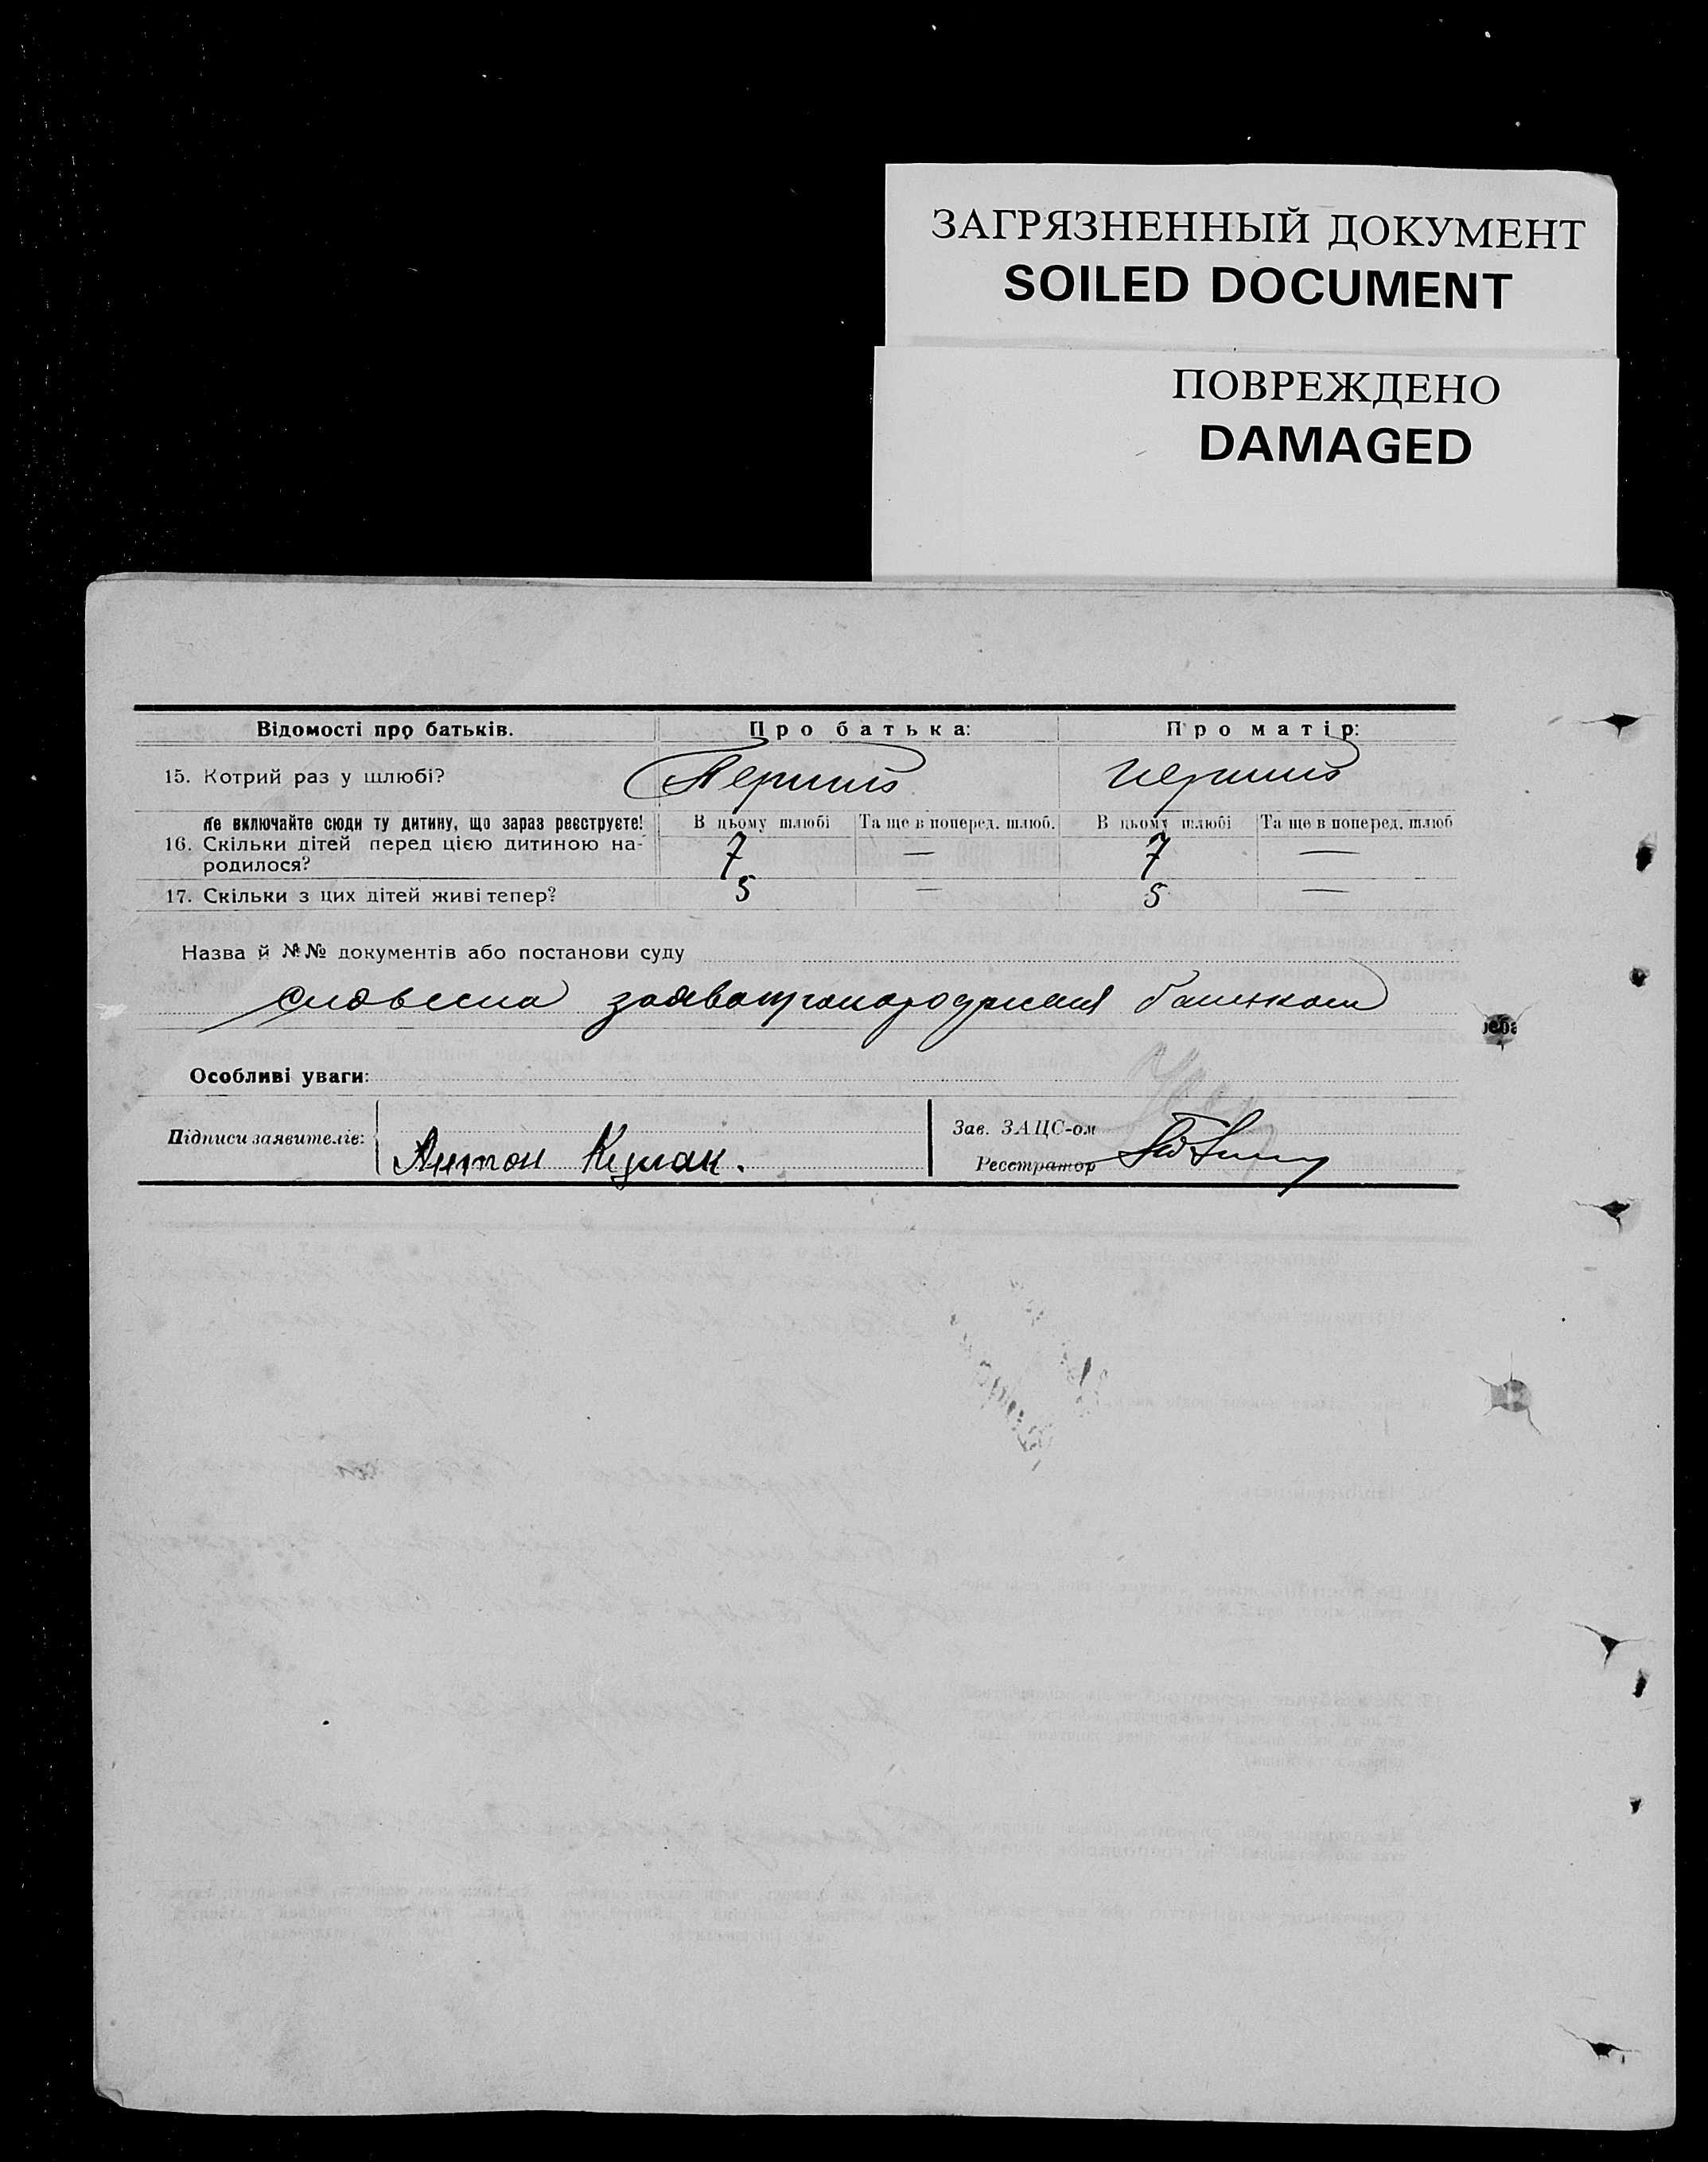 ЗАГРЯЗНЕННЫЙ ДОКУМЕНТ
SOILED DOCUMENT
ПОВРЕЖДЕНО
DAMAGED
Відомості про батьків. Про батька: Про матір:
15. Котрий раз у шлюбі? Перший перший
Не включайте сюди ту дитину, що зараз реєструєте! В цьому шлюбі Та ще в поперед. шлюб. В цьому шлюбі Та ще в поперед. шлюб
16. Скільки дітей перед цією дитиною на- 7 — 7 —
родилося?
17. Скільки з цих дітей живі тепер? 5 — 5 —
Назва й №№ документів або постанови суду
словесна заява
Особливі уваги:
Підписи заявителів: Зав. ЗАЦС-ом
Антон Реєстратор